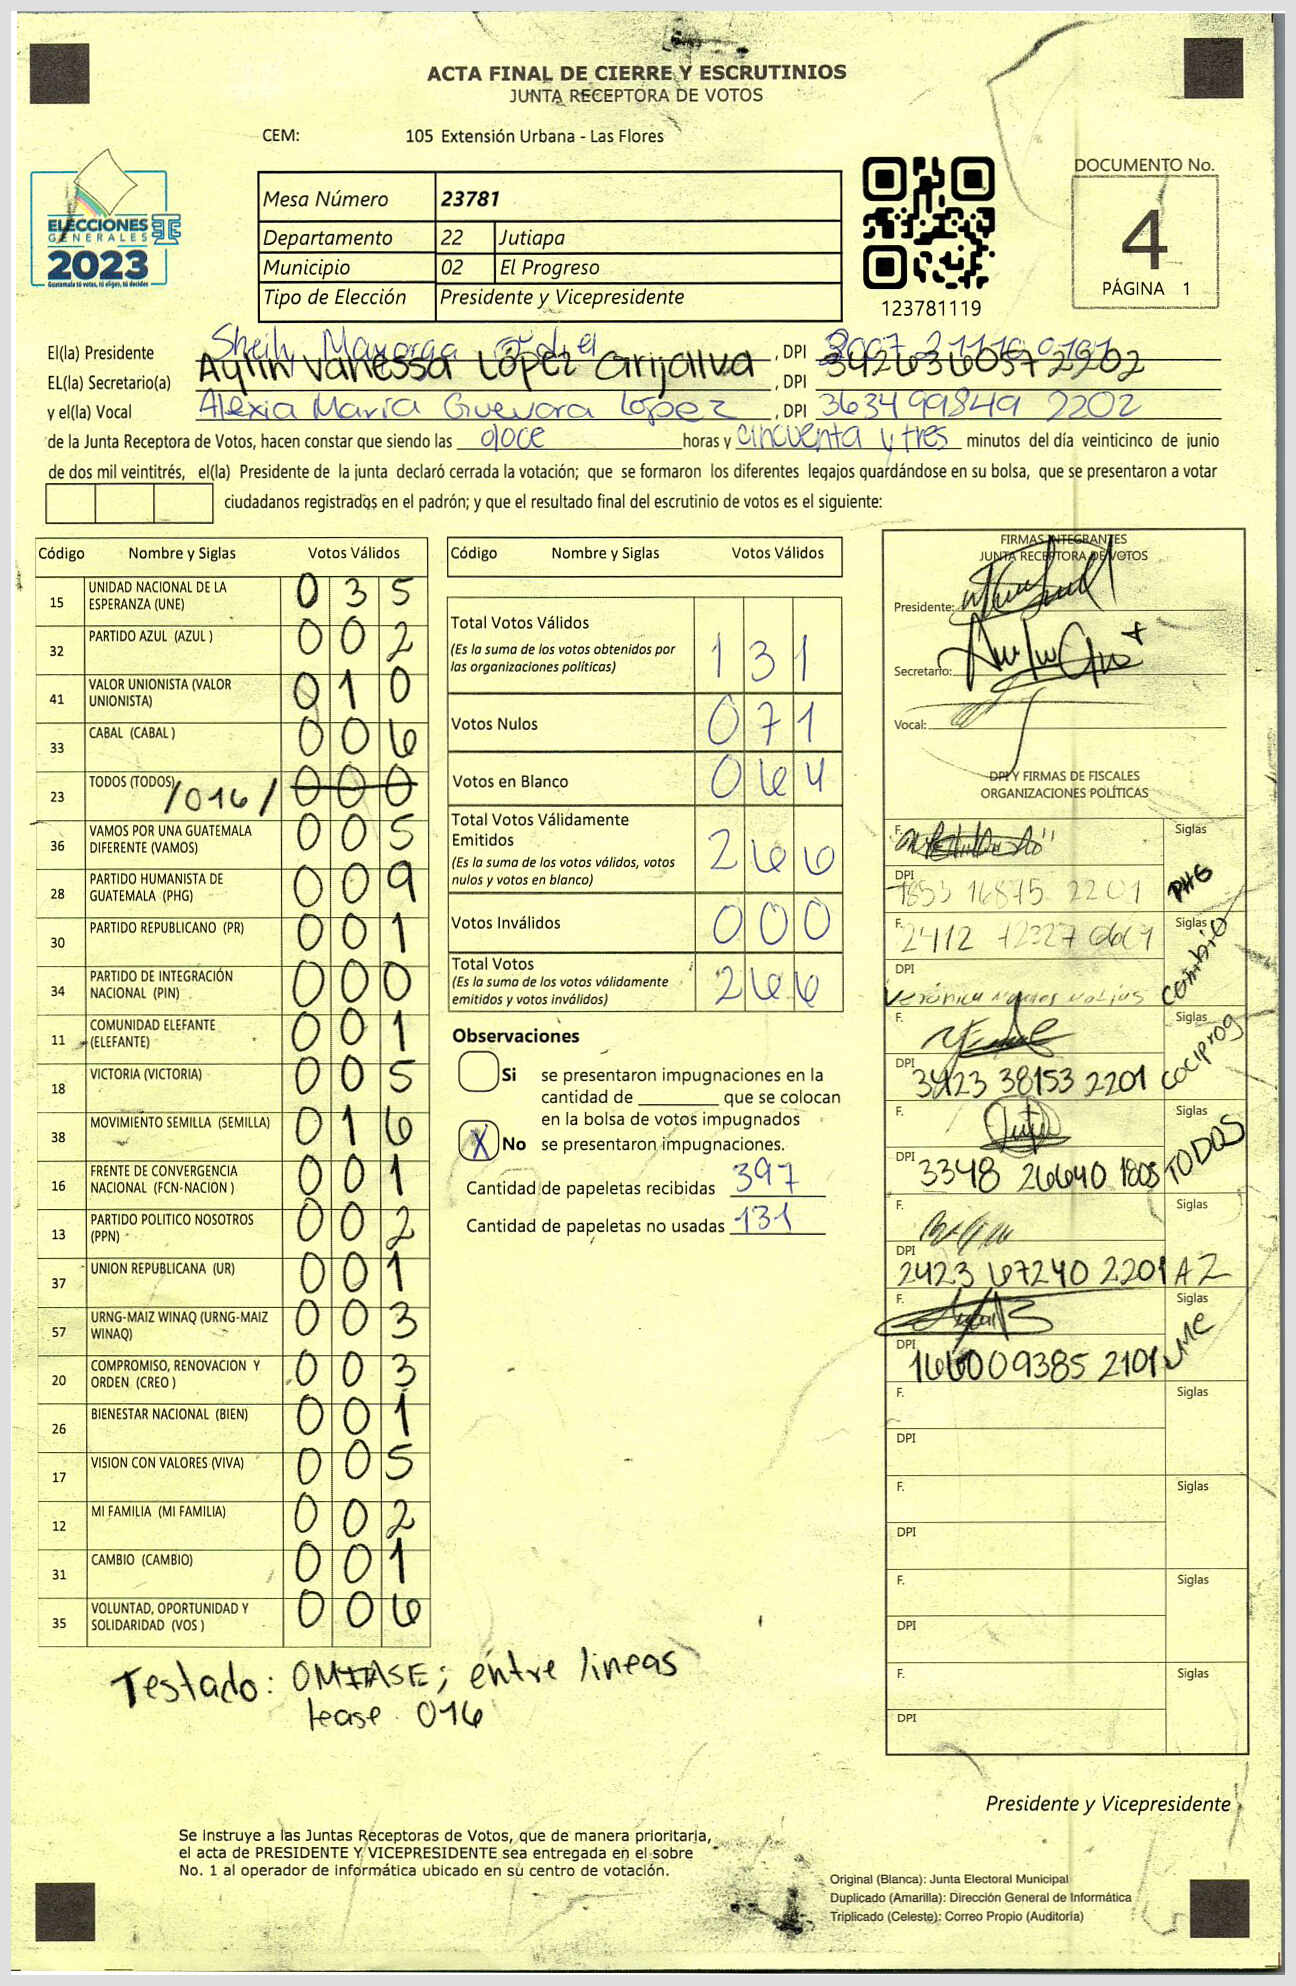 ACTA FINAL DE CIERRE Y ESCRUTINIOS
JUNTA RECEPTORA DE VOTOS
CEM: 105 Extensión Urbana - Las Flores
ELECCIONES
GENERALES
2023
Guatemala tú votas, tú eliges, tú decides
Mesa Número 23781
Departamento 22 Jutiapa
Municipio 02 El Progreso
Tipo de Elección Presidente y Vicepresidente
123781119
DOCUMENTO No.
4
PÁGINA 1
El(la) Presidente Sheily Mayorga , DPI
EL(la) Secretario(a) Aylin Vanessa López Grijalva , DPI 3426360372202
y el(la) Vocal Alexia María Guevara López , DPI 363499849 2202
de la Junta Receptora de Votos, hacen constar que siendo las doce horas y cincuenta y tres minutos del día veinticinco de junio
de dos mil veintitrés, el(la) Presidente de la junta declaró cerrada la votación; que se formaron los diferentes legajos guardándose en su bolsa, que se presentaron a votar
ciudadanos registrados en el padrón; y que el resultado final del escrutinio de votos es el siguiente:
Código Nombre y Siglas Votos Válidos
15 UNIDAD NACIONAL DE LA ESPERANZA (UNE) 0 3 5
32 PARTIDO AZUL (AZUL ) 0 0 2
41 VALOR UNIONISTA (VALOR UNIONISTA) 0 1 0
33 CABAL (CABAL ) 0 0 6
23 TODOS (TODOS) /016/ 0 0 0
36 VAMOS POR UNA GUATEMALA DIFERENTE (VAMOS) 0 0 5
28 PARTIDO HUMANISTA DE GUATEMALA (PHG) 0 0 9
30 PARTIDO REPUBLICANO (PR) 0 0 1
34 PARTIDO DE INTEGRACIÓN NACIONAL (PIN) 0 0 0
11 COMUNIDAD ELEFANTE (ELEFANTE) 0 0 1
18 VICTORIA (VICTORIA) 0 0 5
38 MOVIMIENTO SEMILLA (SEMILLA) 0 1 6
16 FRENTE DE CONVERGENCIA NACIONAL (FCN-NACION ) 0 0 1
13 PARTIDO POLITICO NOSOTROS (PPN) 0 0 2
37 UNION REPUBLICANA (UR) 0 0 1
57 URNG-MAIZ WINAQ (URNG-MAIZ WINAQ) 0 0 3
20 COMPROMISO, RENOVACION Y ORDEN (CREO ) 0 0 3
26 BIENESTAR NACIONAL (BIEN) 0 0 1
17 VISION CON VALORES (VIVA) 0 0 5
12 MI FAMILIA (MI FAMILIA) 0 0 2
31 CAMBIO (CAMBIO) 0 0 1
35 VOLUNTAD, OPORTUNIDAD Y SOLIDARIDAD (VOS ) 0 0 6
Testado: OMITASE; entre lineas
lease. 016
Código Nombre y Siglas Votos Válidos
Total Votos Válidos 1 3 1
(Es la suma de los votos obtenidos por
las organizaciones políticas)
Votos Nulos 0 7 1
Votos en Blanco 0 6 4
Total Votos Válidamente
Emitidos 2 6 6
(Es la suma de los votos válidos, votos
nulos y votos en blanco)
Votos Inválidos 0 0 0
Total Votos 2 6 6
(Es la suma de los votos válidamente
emitidos y votos inválidos)
Observaciones
Si se presentaron impugnaciones en la
cantidad de ________ que se colocan
en la bolsa de votos impugnados
X No se presentaron impugnaciones.
Cantidad de papeletas recibidas 397
Cantidad de papeletas no usadas 131
FIRMAS INTEGRANTES
JUNTA RECEPTORA DE VOTOS
Presidente:
Secretario:
Vocal:
DPI Y FIRMAS DE FISCALES
ORGANIZACIONES POLÍTICAS
F. Siglas
DPI 1853 16875 2201 PHG
F. 2412 Siglas cambio
DPI Verónica
F. Siglas
DPI 3423 38153 2201 cociprog
F. Siglas
DPI 3348 26640 1805 TODOS
F. Siglas
DPI 2423 67240 2201 AZ
F. Siglas
DPI 166009385 2101 UNE
F. Siglas
DPI
F. Siglas
DPI
F. Siglas
DPI
F. Siglas
DPI
Presidente y Vicepresidente
Se instruye a las Juntas Receptoras de Votos, que de manera prioritaria,
el acta de PRESIDENTE Y VICEPRESIDENTE sea entregada en el sobre
No. 1 al operador de informática ubicado en su centro de votación.
Original (Blanca): Junta Electoral Municipal
Duplicado (Amarilla): Dirección General de Informática
Triplicado (Celeste): Correo Propio (Auditoría)